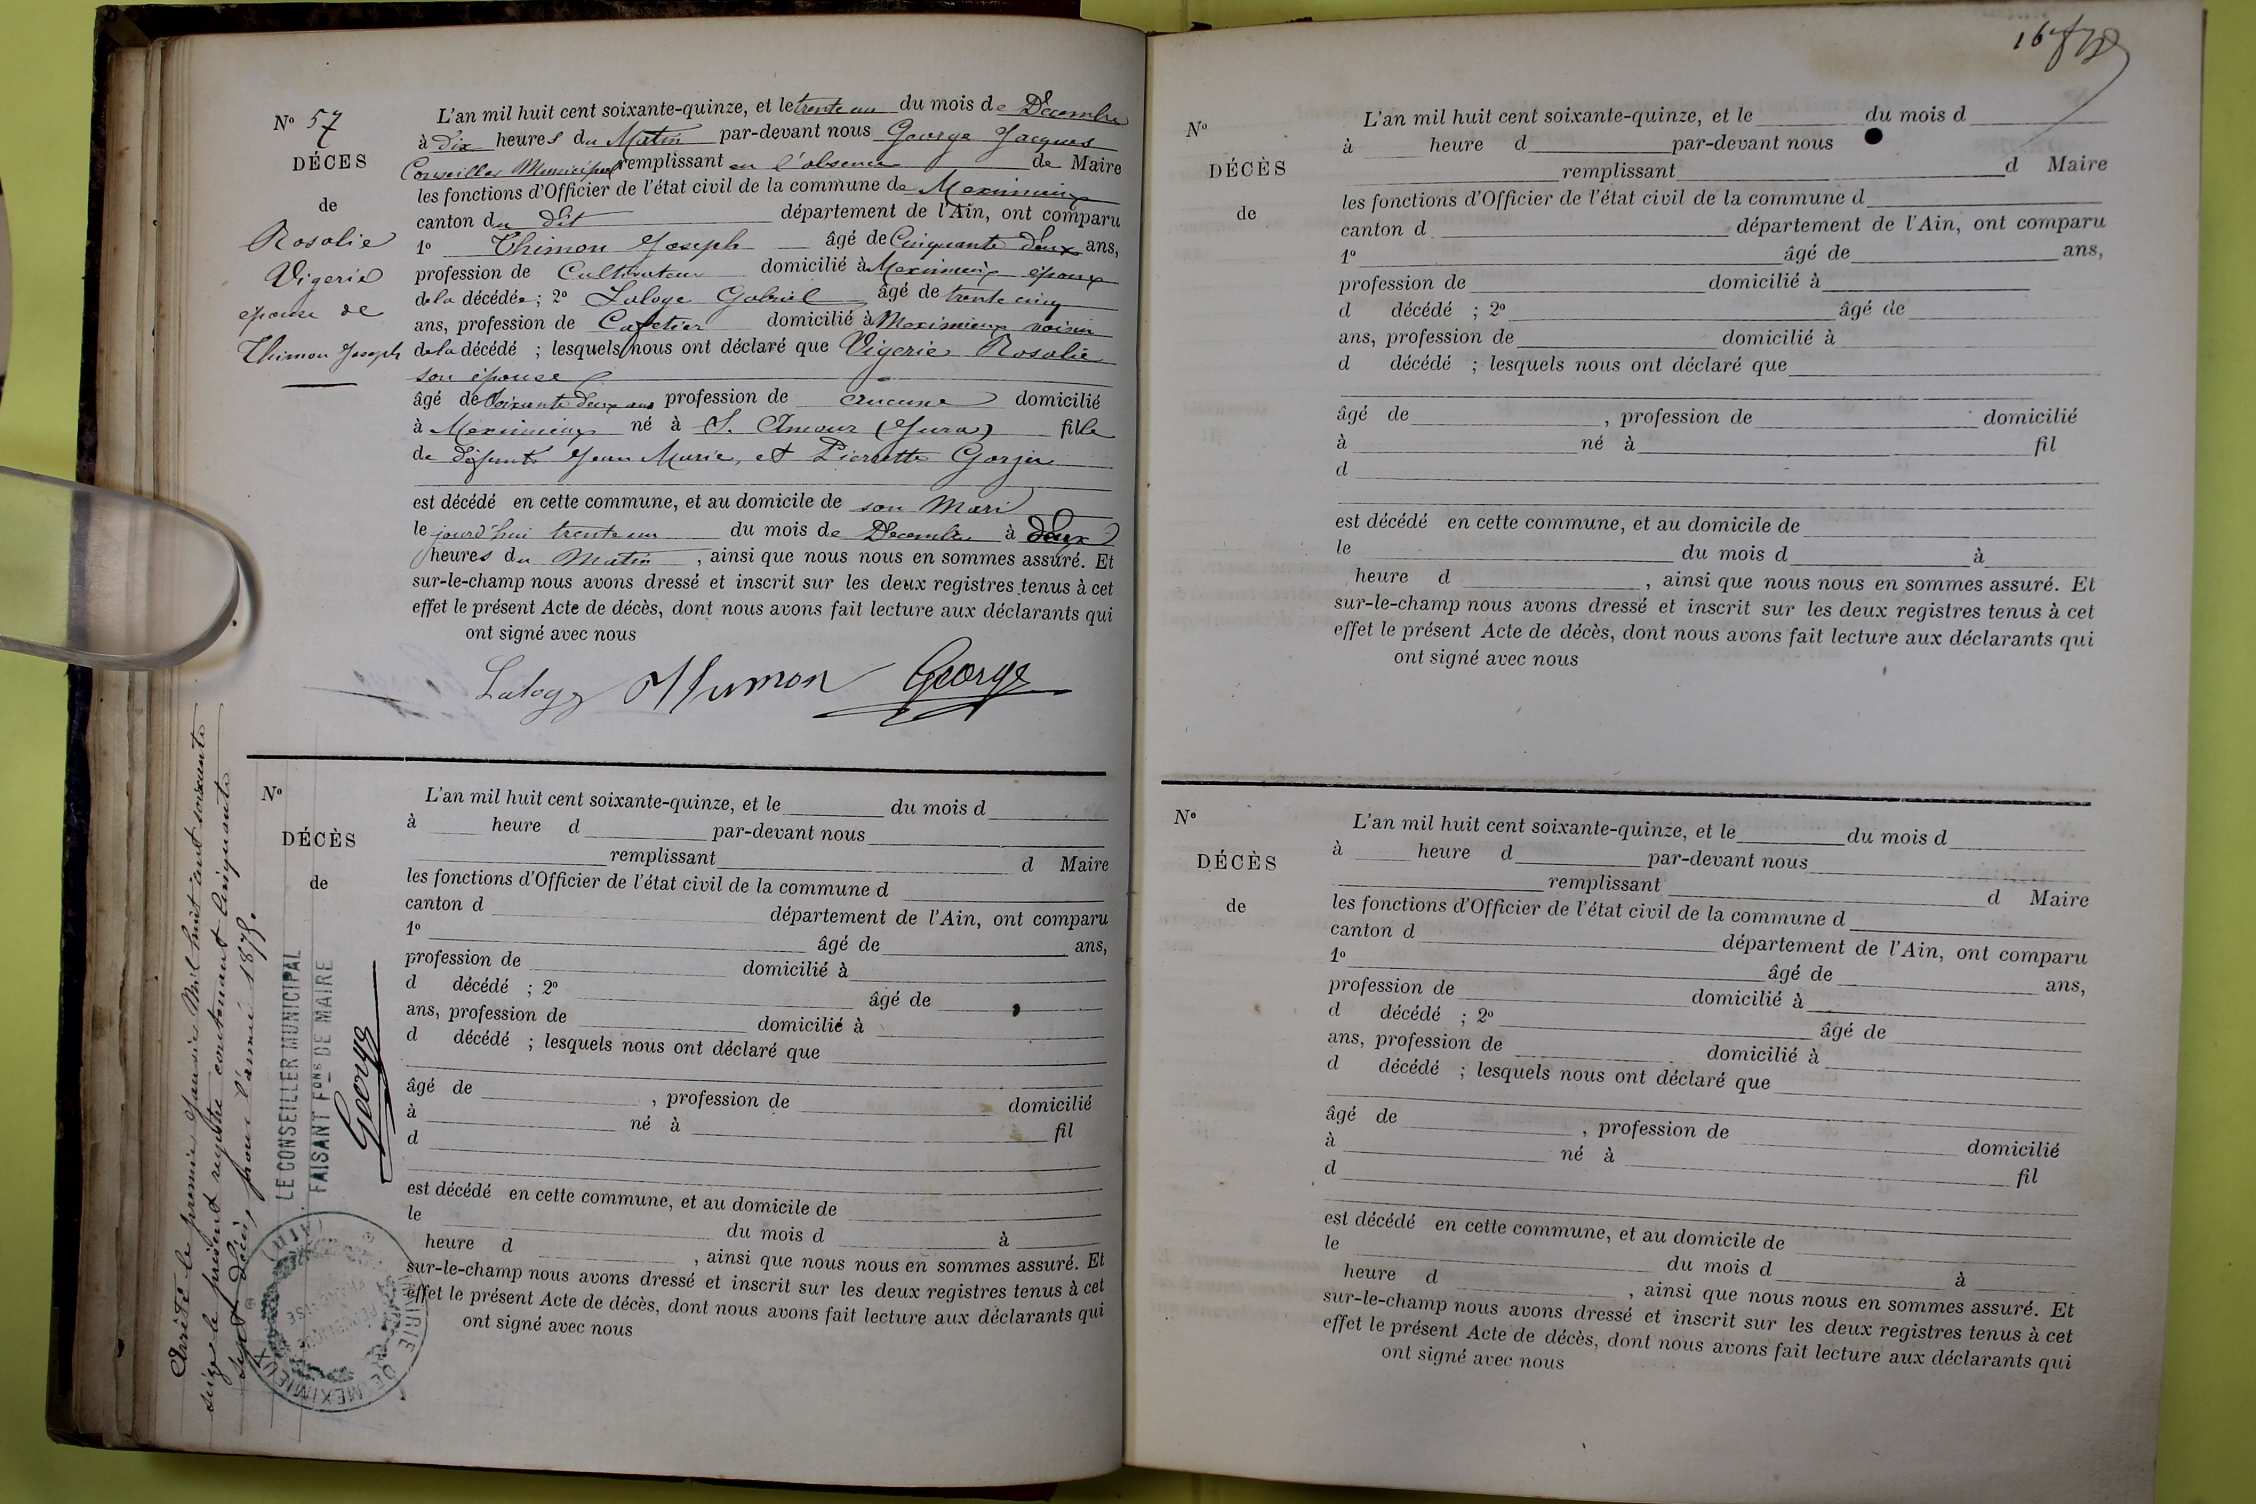 N° 57
DÉCES
de
Rosalie
Vigerie
epouse de
Thimon Joseph
L'an mil huit cent soixante-quinze, et le trente un du mois de Décembre
à dix heures du Matin par-devant nous George Jacques
Conseiller Municipal remplissant en l'absence de Maire
les fonctions d'Officier de l'état civil de la commune de Meximieux
canton du dit département de l'Ain, ont comparu
1° Thimon Joseph âgé de Cinquante deux ans,
profession de Cultivateur domicilié à Meximieux époux
de la décédée; 2° Laloge Gabriel âgé de trente cinq
ans, profession de Cafetier domicilié à Meximieux voisin
de la décédé ; lesquels nous ont déclaré que Vigerie Rosalie
son épouse
âgé de Soixante deux ans profession de aucune domicilié
à Meximieux né à St. Amour (Jura) fille
de défunts Jean Marie, et Pierrette
est décédé en cette commune, et au domicile de son Mari
le jourd'hui trente un du mois de Décembre à deux
heures du Matin , ainsi que nous nous en sommes assuré. Et
sur-le-champ nous avons dressé et inscrit sur les deux registres tenus à cet
effet le présent Acte de décès, dont nous avons fait lecture aux déclarants qui
ont signé avec nous
Laloge Thimon George
N°
DÉCÈS
de
L'an mil huit cent soixante-quinze, et le du mois d
à heure d par-devant nous
remplissant d Maire
les fonctions d'Officier de l'état civil de la commune d
canton d département de l'Ain, ont comparu
1° âgé de ans,
profession de domicilié à
d décédé ; 2° âgé de
ans, profession de domicilié à
d décédé ; lesquels nous ont déclaré que
âgé de , profession de domicilié
à né à fil
d
est décédé en cette commune, et au domicile de
le du mois d à
heure d , ainsi que nous nous en sommes assuré. Et
sur-le-champ nous avons dressé et inscrit sur les deux registres tenus à cet
effet le présent Acte de décès, dont nous avons fait lecture aux déclarants qui
ont signé avec nous
Arrêté le premier Janvier Mil huit cent soixante
seize le présent registre contenant cinquante
sept décès, pour l'année 1875.
LE CONSEILLER MUNICIPAL
FAISANT FONS DE MAIRE
George
MAIRIE DE MEXIMIEUX (AIN)
N°
DÉCÈS
de
L'an mil huit cent soixante-quinze, et le du mois d
à heure d par-devant nous
remplissant d Maire
les fonctions d'Officier de l'état civil de la commune d
canton d département de l'Ain, ont comparu
1° âgé de ans,
profession de domicilié à
d décédé ; 2° âgé de
ans, profession de domicilié à
d décédé ; lesquels nous ont déclaré que
âgé de , profession de domicilié
à né à fil
d
est décédé en cette commune, et au domicile de
le du mois d à
heure d , ainsi que nous nous en sommes assuré. Et
sur-le-champ nous avons dressé et inscrit sur les deux registres tenus à cet
effet le présent Acte de décès, dont nous avons fait lecture aux déclarants qui
ont signé avec nous
N°
DÉCÈS
de
L'an mil huit cent soixante-quinze, et le du mois d
à heure d par-devant nous
remplissant d Maire
les fonctions d'Officier de l'état civil de la commune d
canton d département de l'Ain, ont comparu
1° âgé de ans,
profession de domicilié à
d décédé ; 2° âgé de
ans, profession de domicilié à
d décédé ; lesquels nous ont déclaré que
âgé de , profession de domicilié
à né à fil
d
est décédé en cette commune, et au domicile de
le du mois d à
heure d , ainsi que nous nous en sommes assuré. Et
sur-le-champ nous avons dressé et inscrit sur les deux registres tenus à cet
effet le présent Acte de décès, dont nous avons fait lecture aux déclarants qui
ont signé avec nous